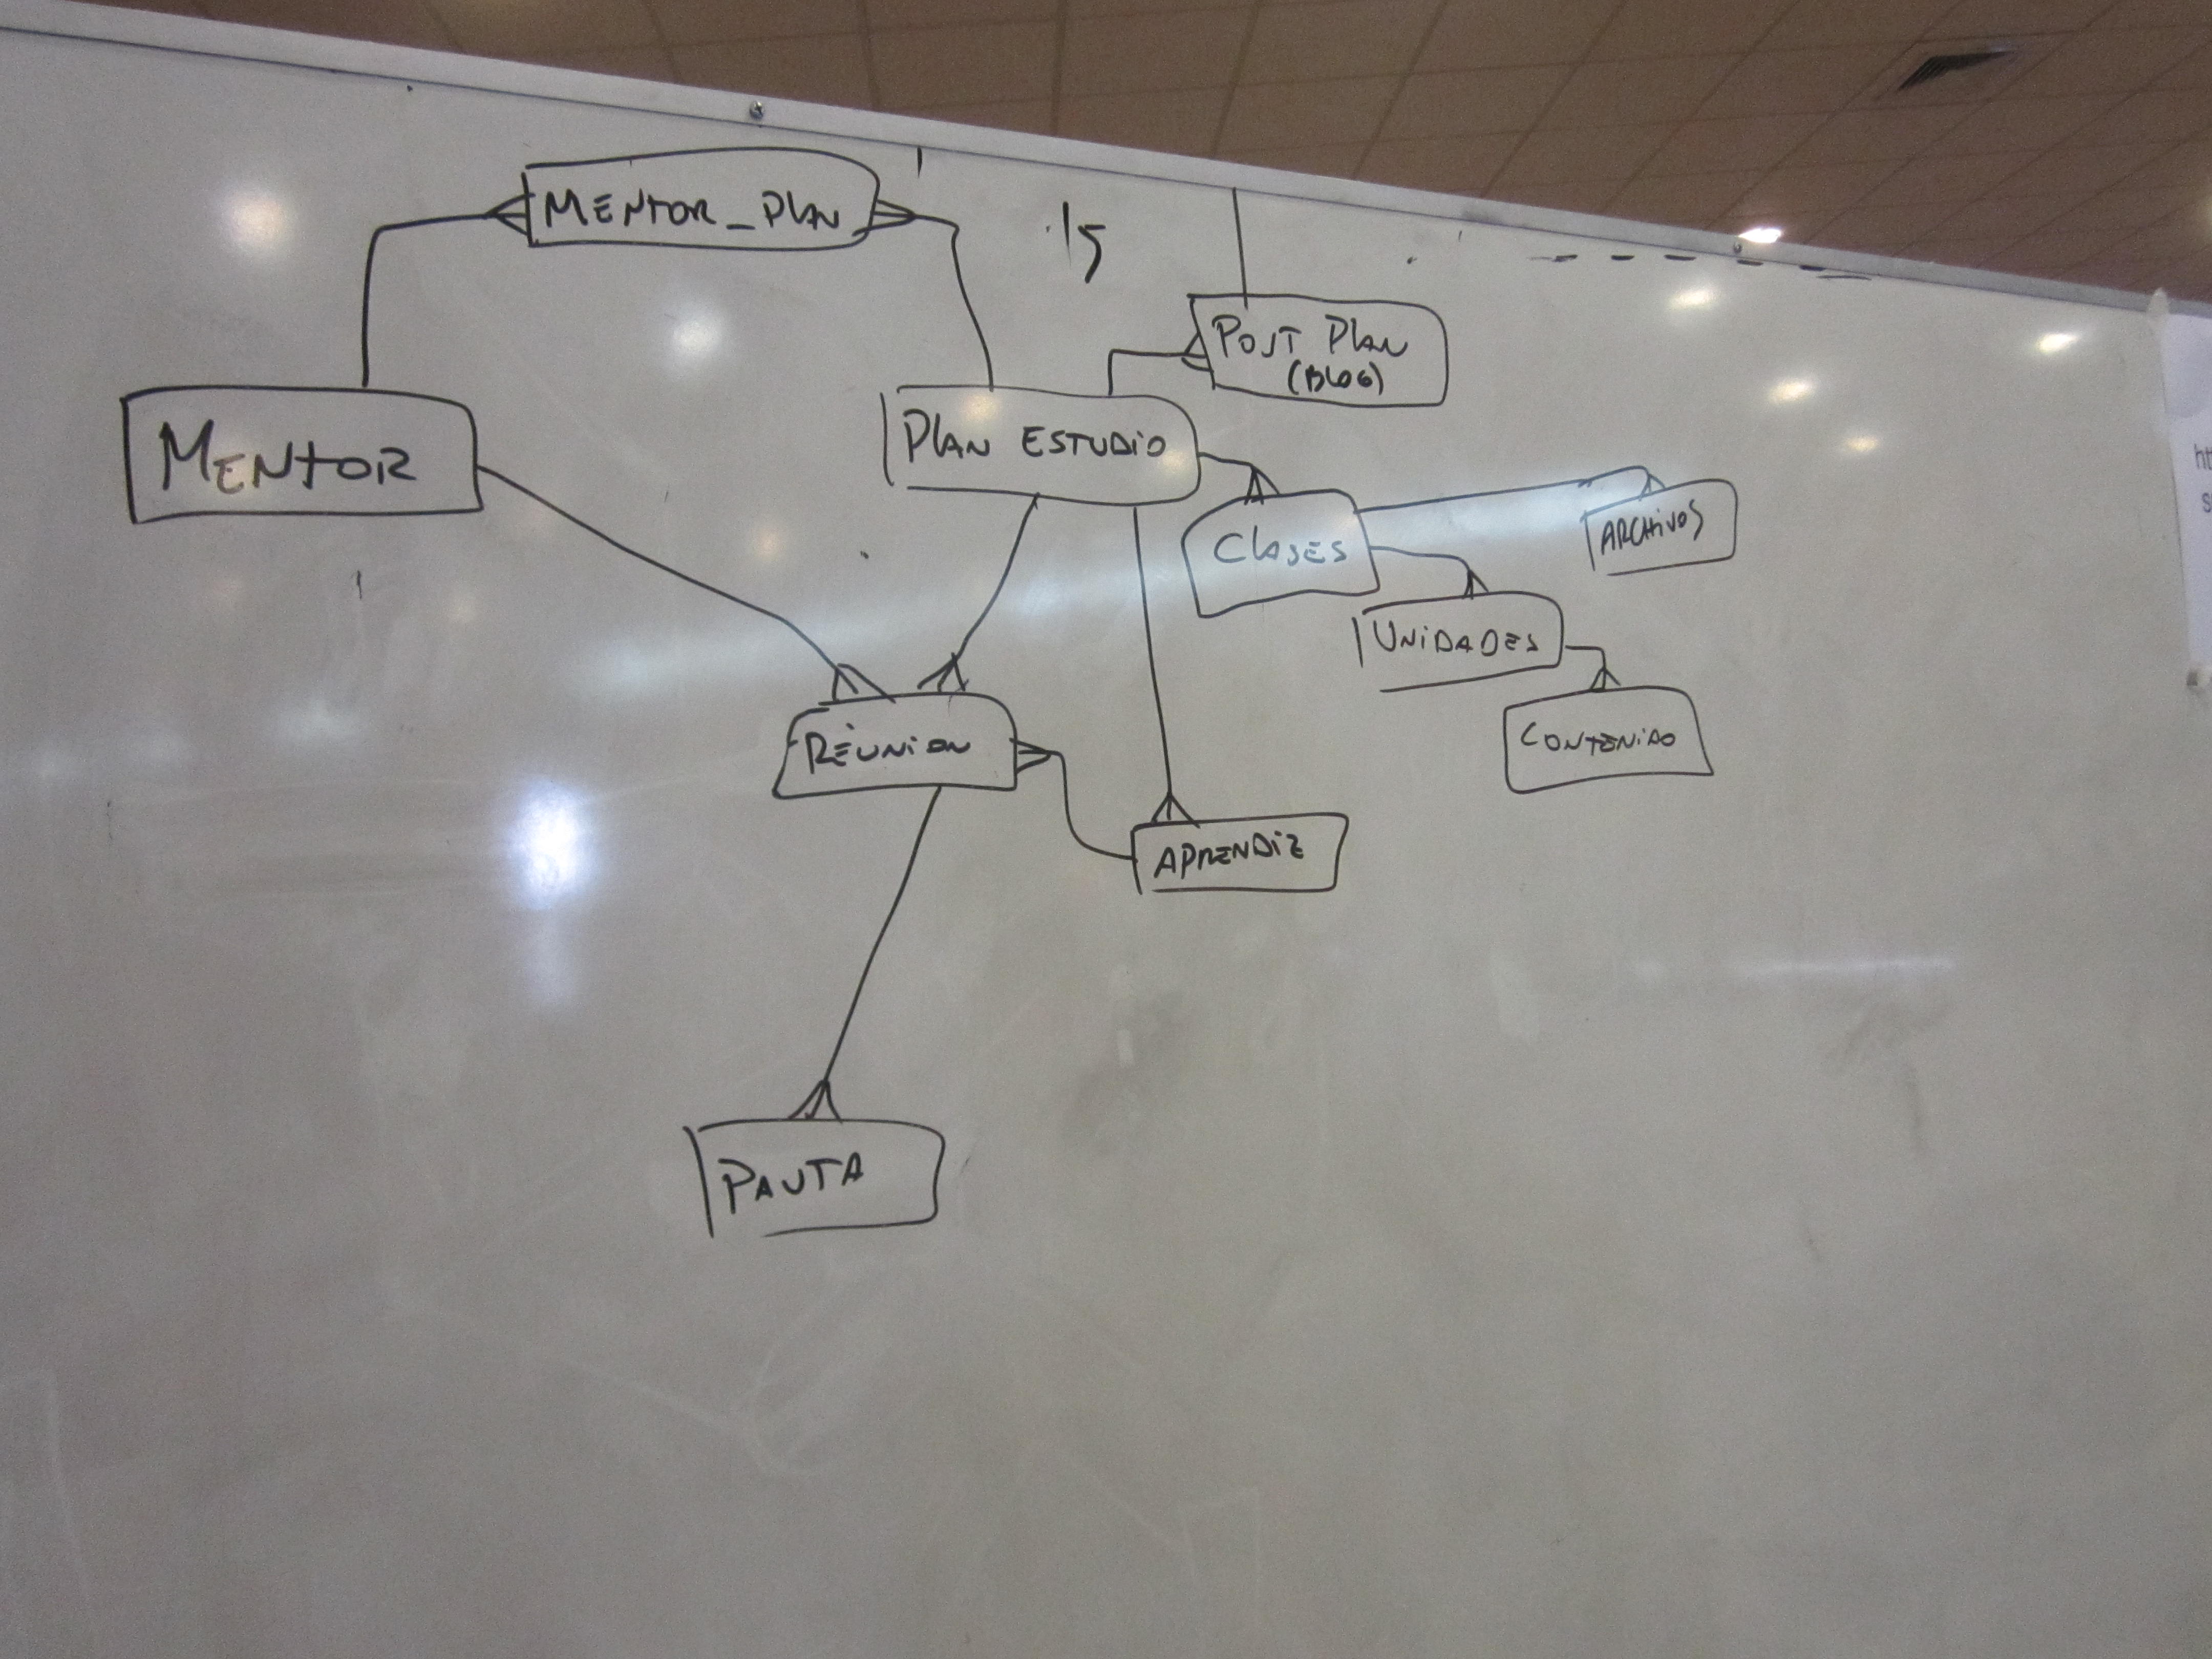 MENTOR_PLAN
15
POST PLAN
(BLOG)
MENTOR
PLAN ESTUDIO
CLASES
ARCHIVOS
UNIDADES
CONTENIDO
REUNION
APRENDIZ
PAUTA